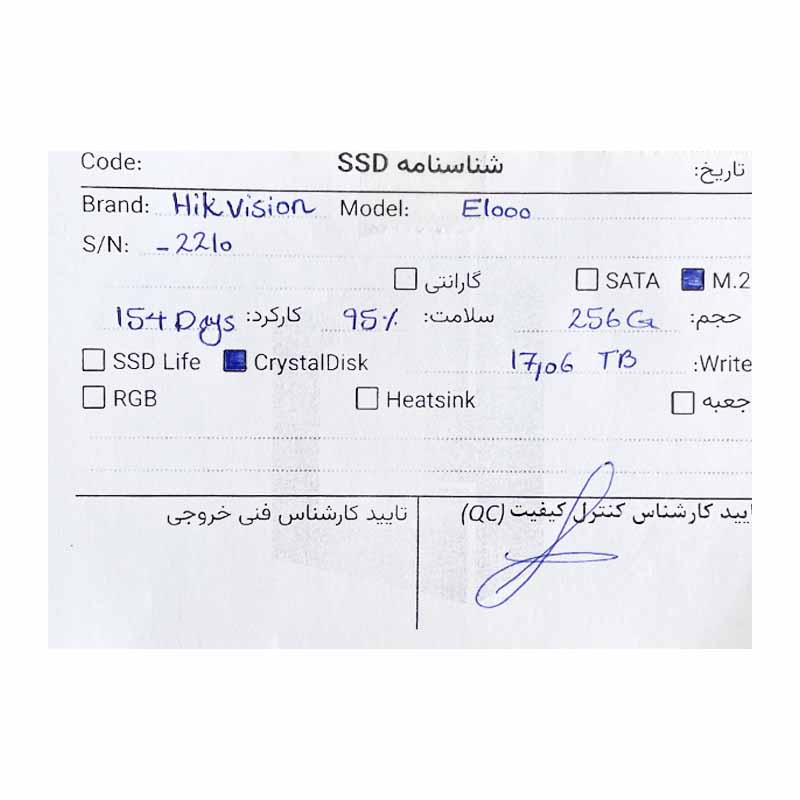 Code: شناسنامه SSD تاریخ:
Brand: Hikvision Model: E1000
S/N: -2210
گارانتی SATA M.2
حجم: 256G سلامت: 95% کارکرد: 154 Days
SSD Life CrystalDisk 17,06 TB Write:
RGB Heatsink جعبه
ایید کارشناس کنترل کیفیت (QC) تایید کارشناس فنی خروجی